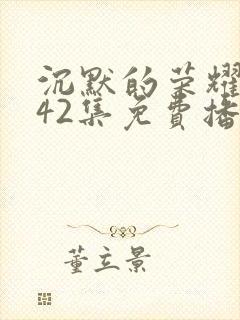 沉默的荣耀
42集免費播
董立景